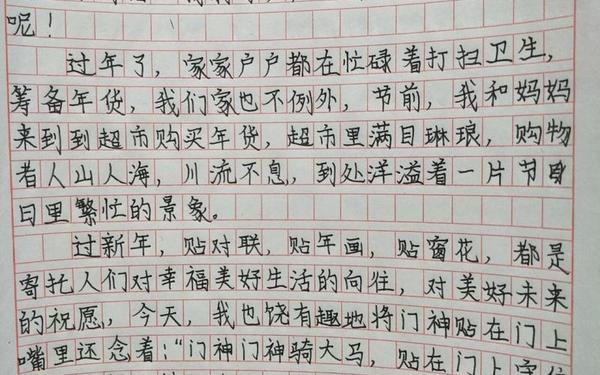 呢！
过年了，家家户户都在忙碌着打扫卫生，
筹备年货，我们家也不例外，节前，我和妈妈
来到到超市购买年货，超市里满目琳琅，购物
者人山人海，川流不息，到处洋溢着一片节
日里繁忙的景象。
过新年，贴对联，贴年画，贴窗花，都是
寄托人们对幸福美好生活的向往，对美好未来
的祝愿，今天，我也饶有趣地将门神贴在门上
嘴里还念着："门神门神骑大马，贴在门上